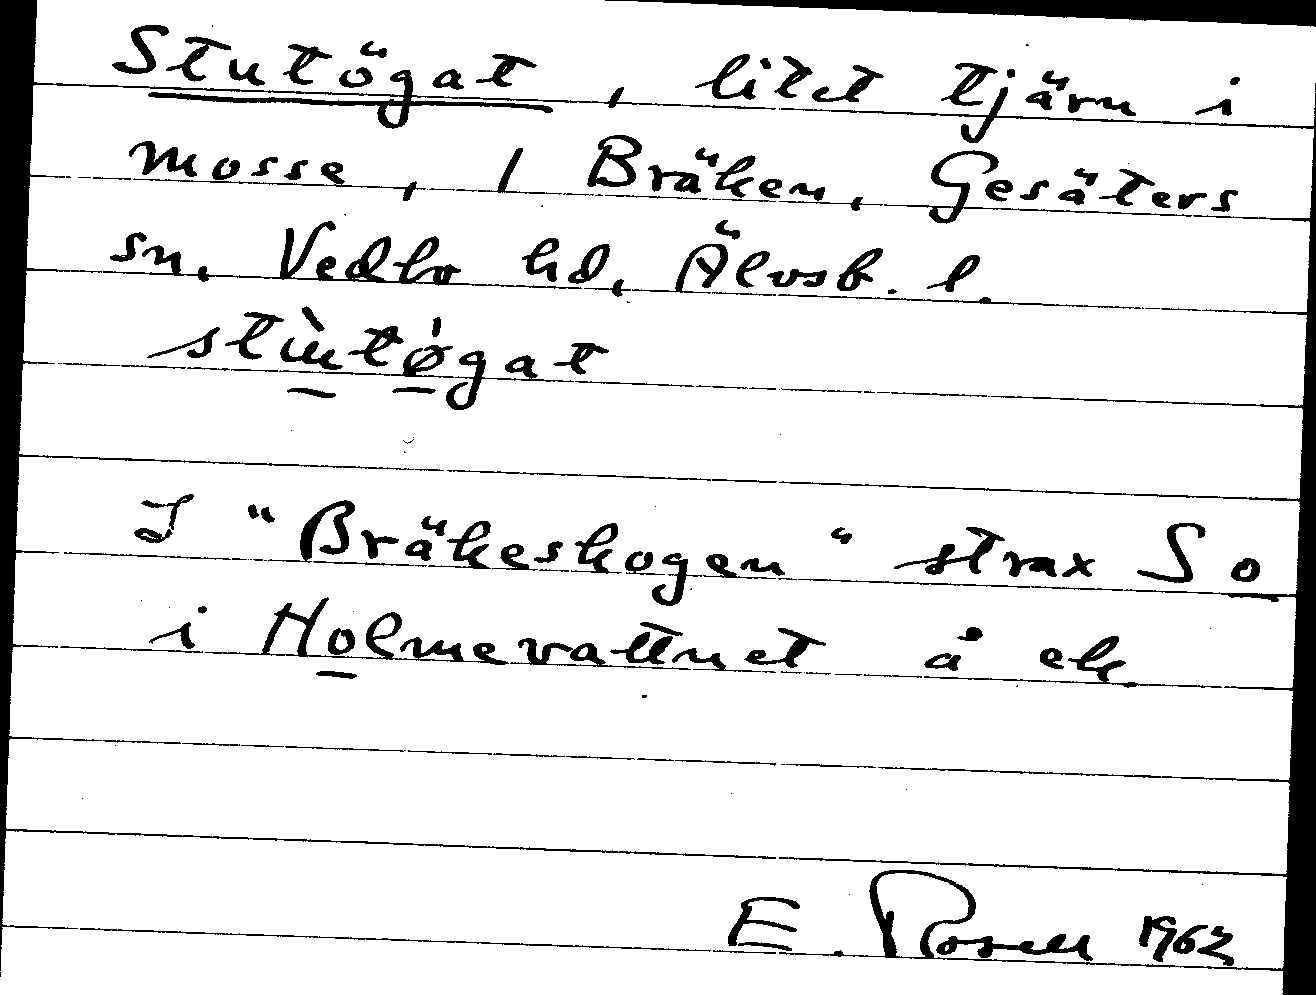 Stutögat, litet tjärn i
mosse, 1 Bräken, Gesäters
sn, Vedbo hd, Älvsb. l.
stùtøgat
I "Bräkeskogen" strax S o
i Holmevattnet å ek.
E. Rosell 1962